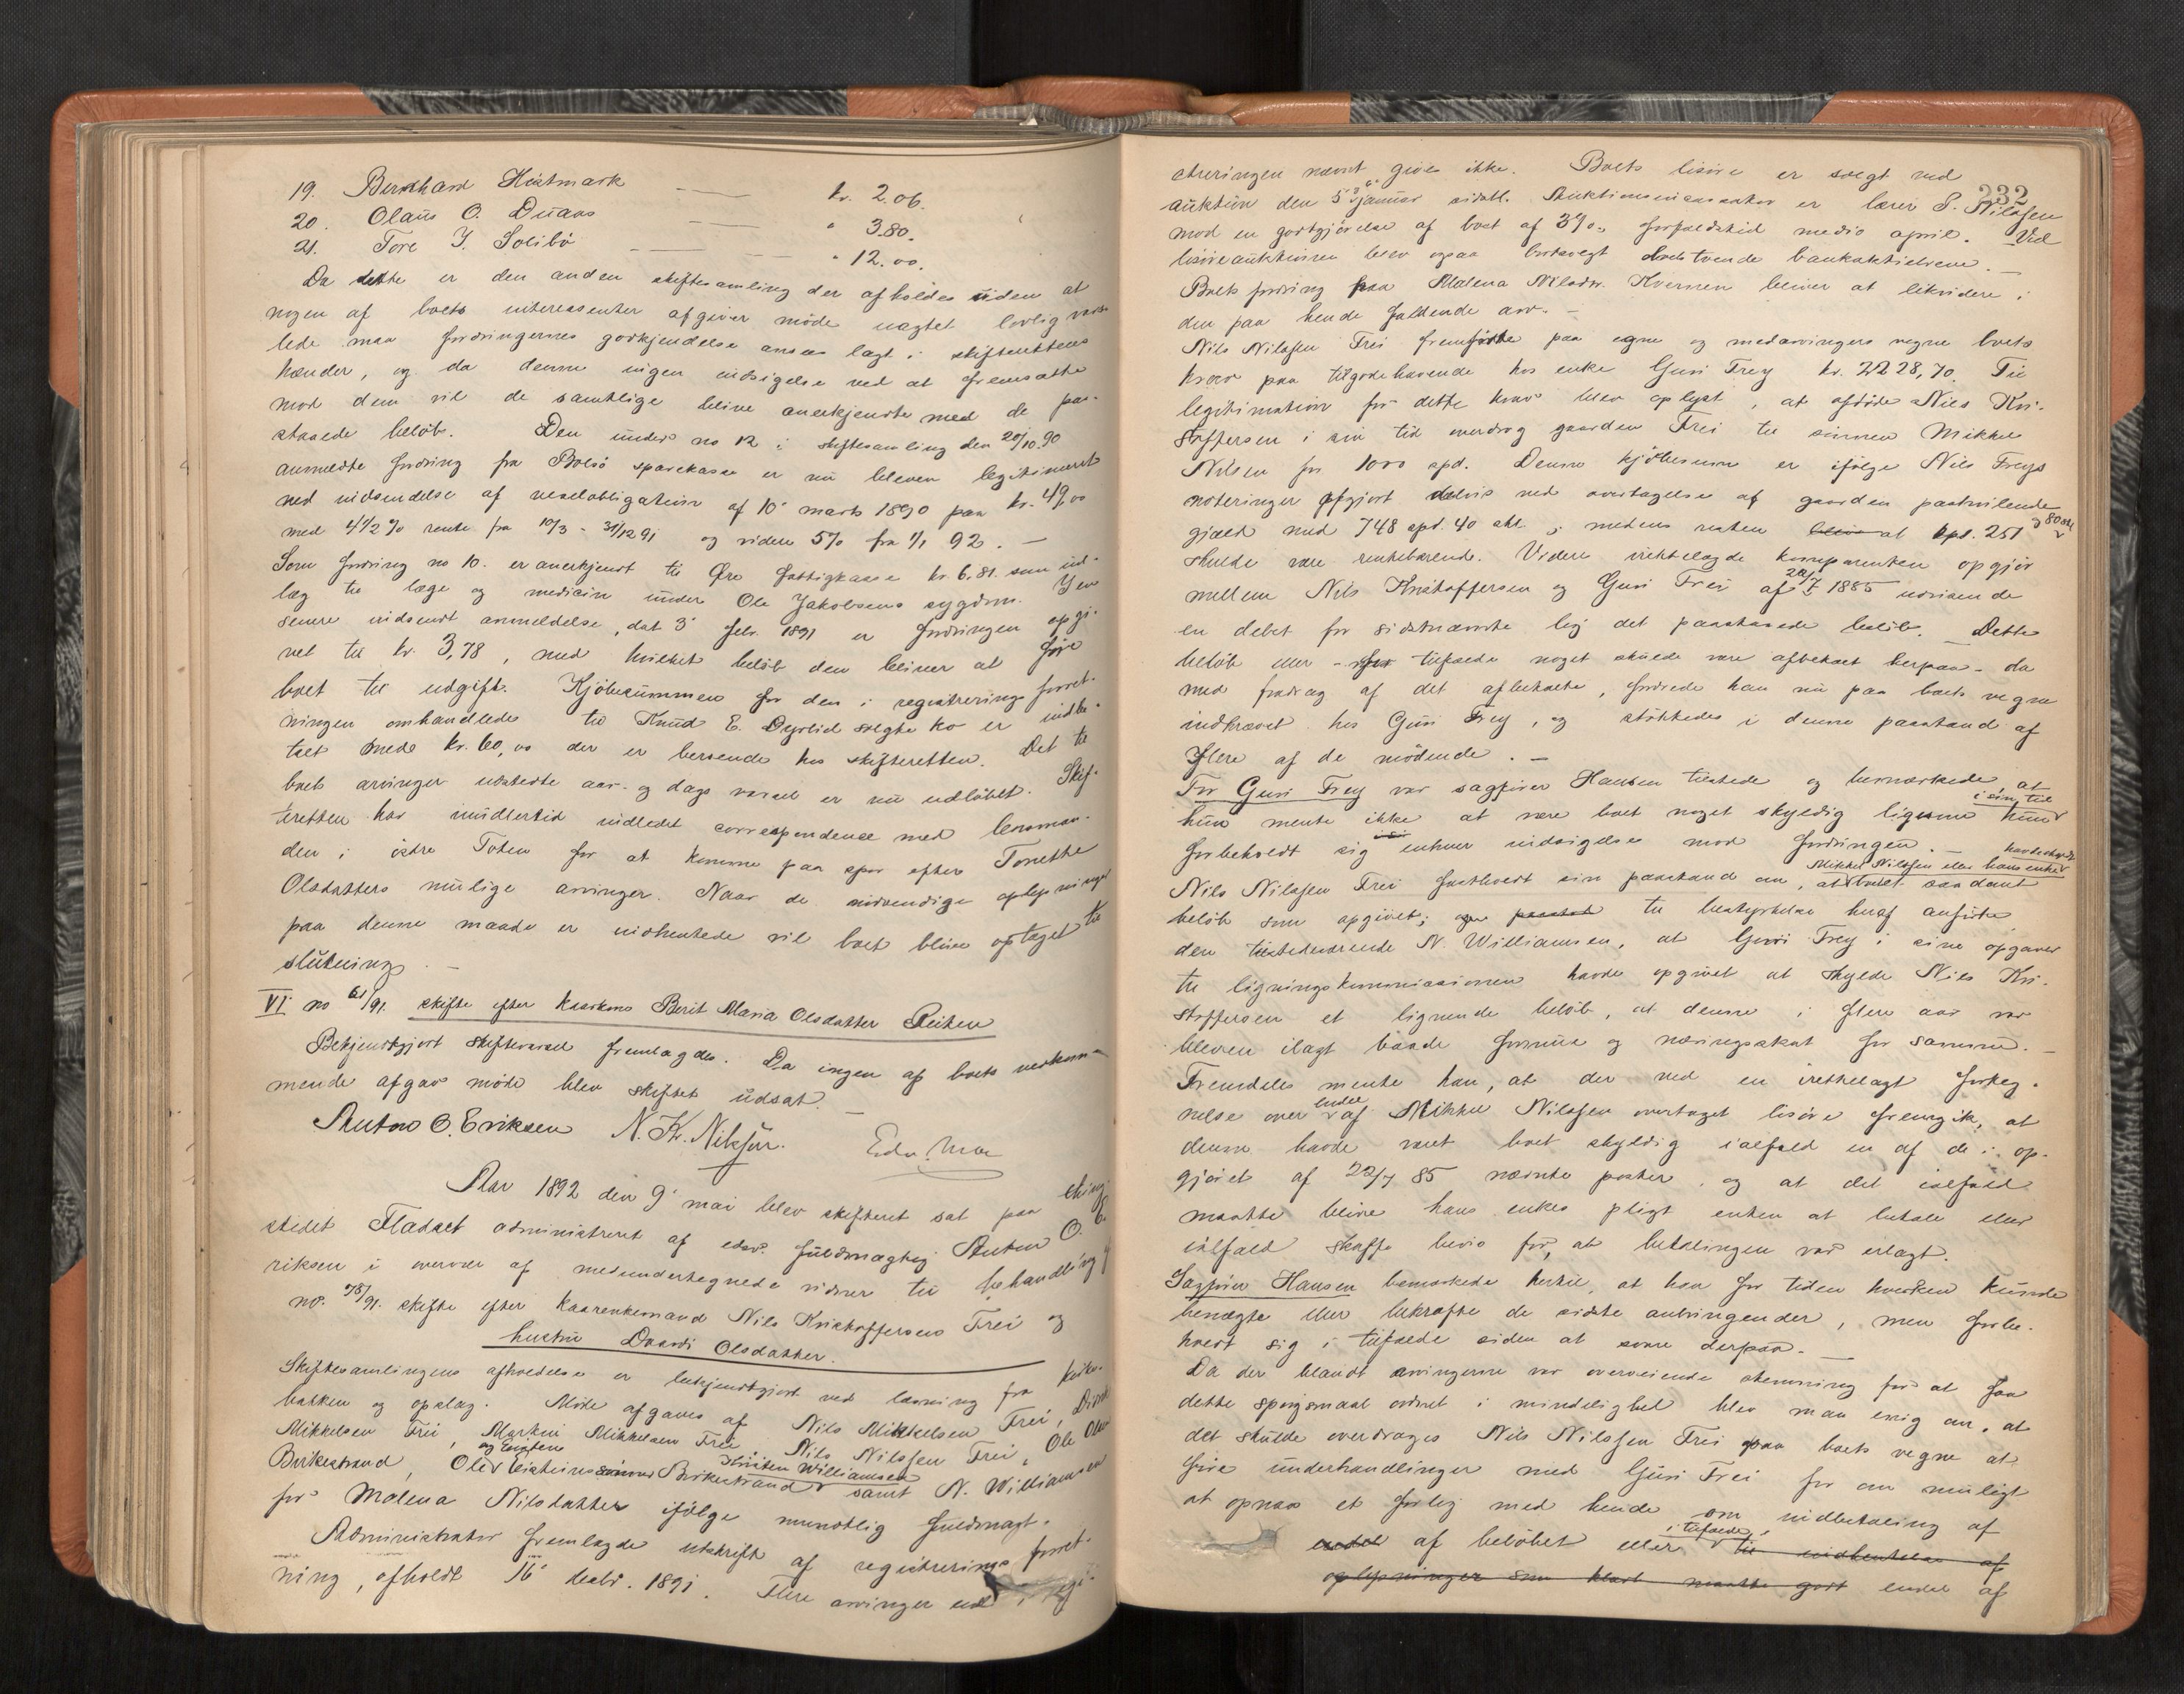 19. Bernhard Histmark — kr. 2.06.
20. Olaus O. Duaas — " 3.80.
21. Tore J. Solibö — " 12.00.
Da dette er den anden skiftesamling der afholdes uden at
nogen af boets interessenter afgiver möde uagtet lovlig vars-
lede maa fordringernes godkjendelse ansees lagt i skifterettens
hænder, og da denne ingen indsigelse ved at fremsætte
mod dem vil de samtlige blive anerkjendte med de paa-
staaede belöb. Den under no 12 i skiftesamling den 20/10 90
anmeldte fordring fra Bolsö sparekasse er nu bleven legitimeret
ved indsendelse af vexelobligation af 10' marts 1890 paa kr. 49,00
med 4 1/2 % rente fra 10/3 - 31/12 91 og videre 5% fra 1/1 92. —
Som fordring no 10. er anerkjendt til Öre fattigkasse kr 6,81. som ud-
læg til læge og medicin under Ole Jakobsens sygdom. I en
senere indsendt anmeldelse, dat 3' febr. 1891 er fordringen opgi-
vet til kr. 3,78, med hvilket belöb den bliver at före
boet til udgift. Kjöbesummen for den i registreringsforret-
ningen omhandlede til Knud E. Dyrlid solgte ko er indbe-
talt med kr. 60,00 der er beroende hos skifteretten. Det til
boets arvinger udstedte aar- og dags varsel er nu udlöbet. Skif-
teretten har imidlertid indledet correspondence med lensman-
den i östre Toten for at komme paa spor efter Tonette
Olsdatters mulige arvinger. Naar de nödvendige oplysninger
paa denne maade er indhentede vil boet blive optaget til
slutning. —
VI no 61/91. skifte efter kaarkone Berit Maria Olsdatter Reiten
Bekjendtgjort skiftevarsel fremlagdes. Da ingen af boets vedkom-
mende afgav möde blev skiftet udsat. —
Anton O. Eriksen N. Kr. Nilsen. Edv. Moe
Aar 1892 den 9' mai blev skifteret sat paa thing-
stedet Fladset administreret af edsv. fuldmægtig Anton O. E-
riksen i overvær af medundertegnede vidner til behandling af
no. 78/91. skifte efter kaarenkemand Nils Kristoffersen Frei og
hustru Dordi Olsdatter.
Skiftesamlingens afholdelse er bekjendtgjort ved læsning fra kirke-
bakken og opslag. Möde afgaves af Nils Mikkelsen Frei,
Mikkelsen Frei, Martin Mikkelsen Frei, Nils Nilssen Frei, Ole Olsen
og Eisten Kristen Williamsen
Birkestrand, Ole Eistensönner Birkestrand samt N. Williamsen
for Malena Nilsdatter ifölge mundtlig fuldmagt.
Administrator fremlagde udskrift af registrerings forret-
ning, afholdt 16' decbr. 1891. Flere arvinger end i regi-
332
streringen nævnt gives ikke. Boets lösöre er solgt ved
auktion den 5' januar sidstl. Auktionsincassator er lærer S. Nilssen
mod en godtgjörelse af boet af 3%, forfaldstid medio april. Ved
lösöreauktionen blev ogsaa bortsolgt boets tvende bankaktiebreve. —
Boets fordring paa Malena Nilsdtr. Kvernen bliver at likvidere i
den paa hende faldende arv. —
Nils Nilssen Frei fremförte paa egne og medarvingers vegne boets
krav paa tilgodehavende hos enke Guri Frey kr. 2228,70. Til
legitimation for dette krav blev oplyst, at afdöde Nils Kri-
stoffersen i sin tid overdrog gaarden Frei til sönnen Mikkel
Nilsen for 1000 spd. Denne kjöbesum er ifölge Nils Freys
noteringer opgjort delvis ved overtagelse af gaarden paahvilende
gjæld med 748 spd. 40 skl. ; medens resten blive at spd. 251 og 80 skl
skulde være rentebærende. Videre irettelagde komparenten opgjör
mellem Nils Kristoffersen og Guri Frei af 22/7 1885 udvisende
en debet for sidstnævnte lig det paastaaede belöb. Dette
belöb eller - i tilfælde noget skulde være afbetalt herpaa - da
med fradrag af det afbetalte, fordrede han nu paa boets vegne
indkrævet hos Guri Frey, og stöttedes i denne paastand af
flere af de mödende. —
For Guri Frey var sagförer Hansen tilstede og bemærkede, at
i sin tid
hun mente ikke at være boet noget skyldig ligesom hun
forbeholdt sig enhver indsigelse mod fordringen. —
Mikkel Nilssen eller hans enke havde skyldt
Nils Nilssen Frei fastholdt sin paastand om, at boet saadant
belöb som opgivet; og paastod til bestyrkelse heraf anförte
den tilstedeværende N. Williamsen, at Guri Frey i sine opgaver
til ligningskommissionen havde opgivet at skylde Nils Kri-
stoffersen et lignende belöb, at denne i flere aar var
bleven ilagt baade formue og næringsskat for samme. —
Fremdeles mente han, at der ved en irettelagt forteg-
nelse over endel af Mikkel Nilssen overtaget lösöre fremgik, at
denne havde været boet skyldig ialfald en af de i op-
gjöret af 22/7 85 nævnte poster, og at det ialfald
maatte blive hans enkes pligt enten at betale eller
ialfald skaffe bevis for, at betalingen var erlagt.
Sagförer Hansen bemærkede hertil, at han for tiden hverken kunde
benægte eller bekræfte de sidste anbringender, men forbe-
holdt sig i tilfælde siden at svare derpaa. —
Da der blandt arvingerne var overveiende stemning for at faa
dette spörgsmaal ordnet i mindelighed blev man enig om, at
det skulde overdrages Nils Nilssen Frei paa boets vegne at
före underhandlinger med Guri Frei for om muligt
at opnaa et forlig med hende om indbetaling af
endel af belöbet eller i tilfælde til indhentelse af
oplysninger som klart maatte godt endel af